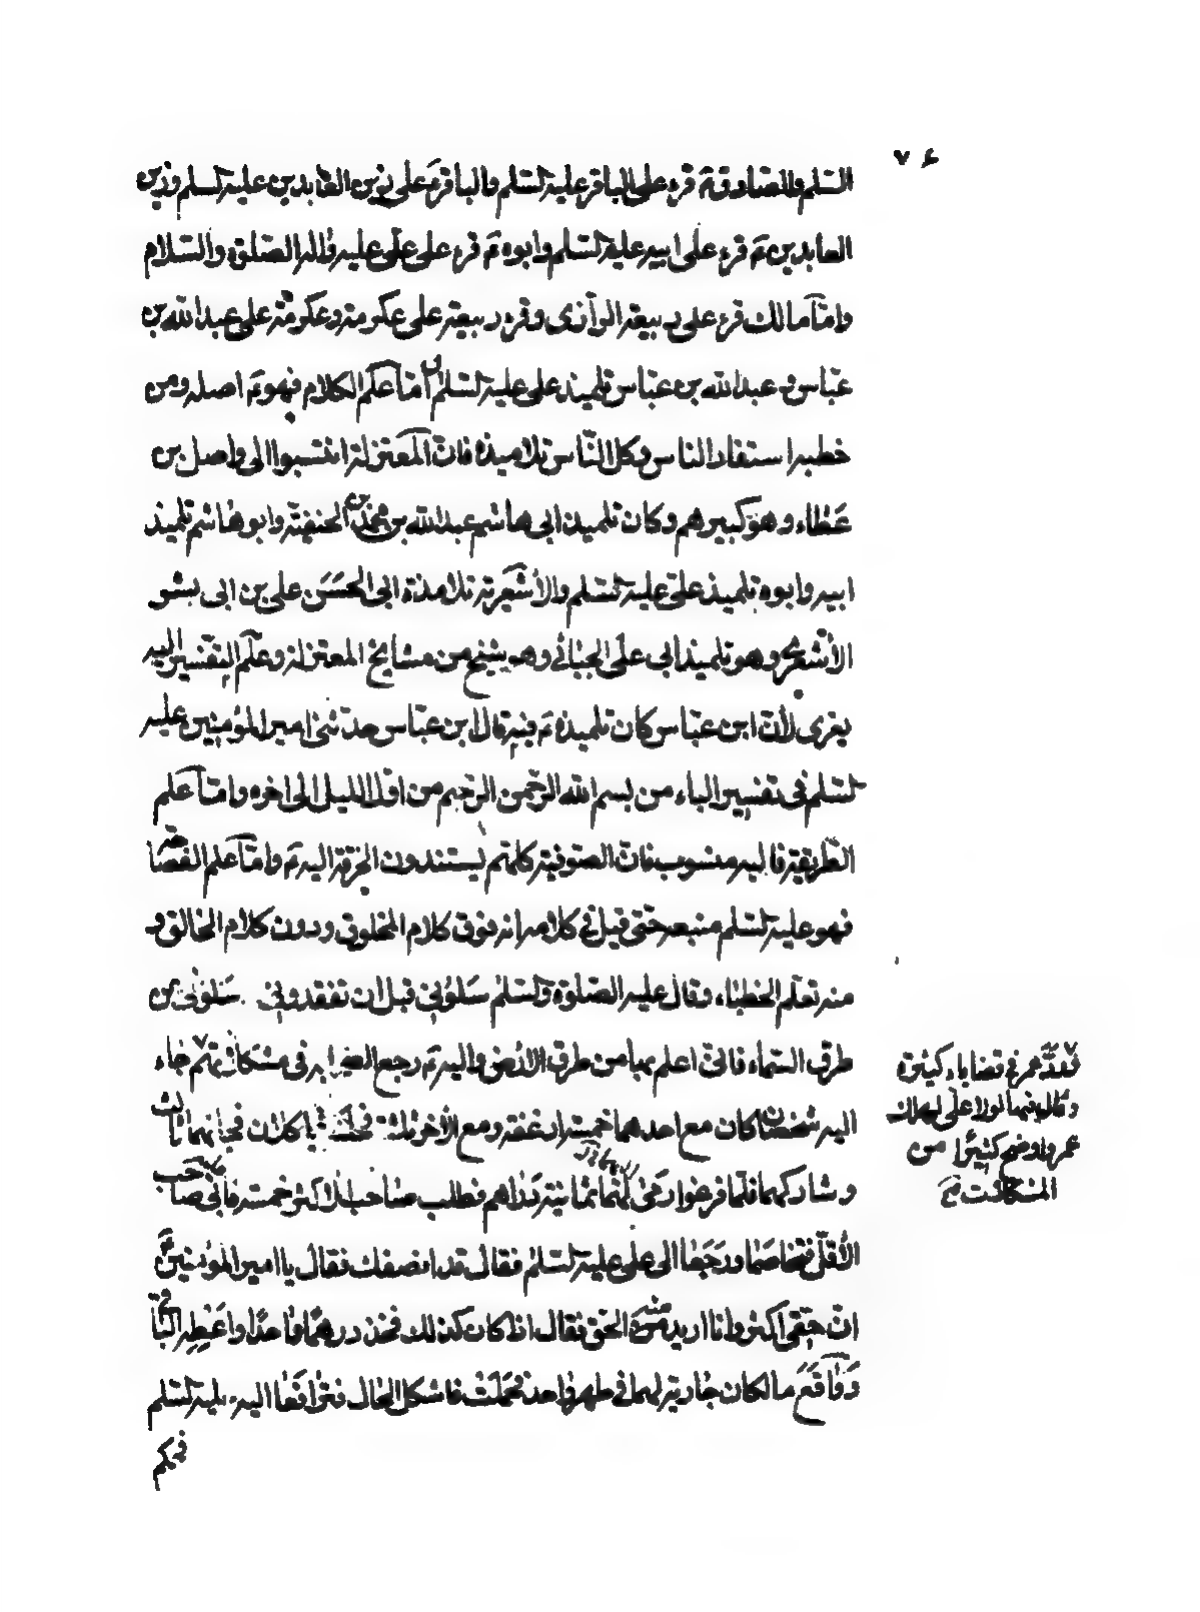 ٧٤
السلم والصادق ع قرء على الباقر عليه السلم والباقر ع على زين العابدين عليه السلم وزين
العابدين ع قرء على ابيه عليه السلم وابوه ع قرء على علي عليه واله الصلوة والسلام
وامّا مالك قرء على ربيعة الرازى وقرء ربيعة على عكرمة وعكرمة على عبد الله بن
عباس وعبد الله بن عباس تلميذ على عليه السلم امّا علم الكلام فهو ع اصله ومن
خطبه استفاد الناس وكل الناس تلاميذه فان المعتزلة انتسبوا الى واصل بن
عطاء وهو كبيرهم وكان تلميذ ابى هاشم عبد الله بن محمد بن الحنفية وابو هاشم تلميذ
ابيه وابوه تلميذ علي عليه السلم والأشعرية تلامذة ابى الحسن على بن ابى بشر
الأشعرى وهو تلميذ ابى على الجبائى وهو شيخ من مشايخ المعتزلة وعلم التفسير اليه
يعزى لأن ابن عباس كان تلميذه ع فيه قال ابن عباس حدثنى امير المؤمنين عليه
السلم فى تفسير الباء من بسم الله الرحمن الرحيم من اول الليل الى اخره وامّا علم
الطريقة فاليه منسوب فان الصوفية كلهم يستندون الخرقة اليه ع وامّا علم الفصاحة
فهو عليه السلم منبعه حتى قيل فى كلامه انه فوق كلام المخلوق ودون كلام الخالق و
منه تعلم الخطباء وقال عليه الصلوة والسلم سلونى قبل ان تفقدونى سلونى عن
طرق السماء فانى اعلم بها من طرق الأرض واليه ع رجع الصحابه فى مشكلاتهم جاء
اليه شخصان كان مع احدهما خمسة ارغفة ومع الأخر ثلثة يأكلان فجائهما ثالث
وشاركهما فلما فرغوا رمى لهما ثمانية دراهم فطلب صاحب الأكثر خمسة فابى صاحب
الأقل فتخاصما ورجعا الى على عليه السلم فقال قد انصفك فقال يا امير المؤمنين
ان حقى اكثر وانا اريد من الحق فقال اذا كان كذلك فخذ درهما واحدا واعطه الباقى
و واقع مالكان جارية لهما فى طهر واحد فحملت فاشكل الحال فترافعا اليه عليه السلم
فحكم
فقد عمر فى قضاياء كثيرة
وقال فيها لولا على لهلك
عمر واوضح كثيرا من
المشكلات